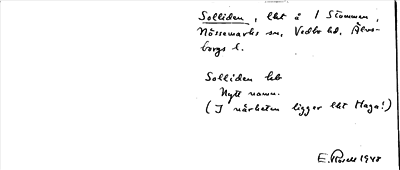 Solliden, lht å 1 Stommen,
Nössemarks sn, Vedbo hd, Älvs-
borgs l.
Solliden lht
Nytt namn.
(I närheten ligger lht Haga!)
E. Rosell 1948